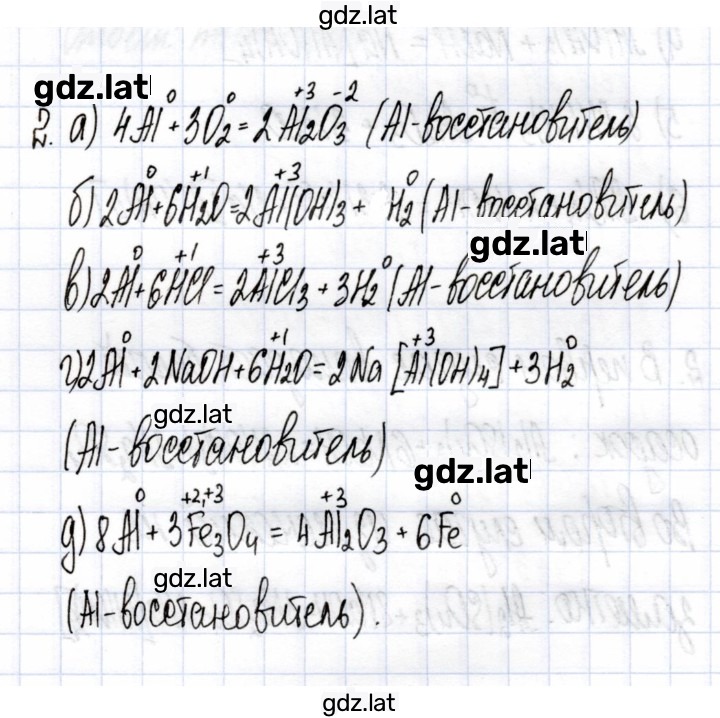 gdz.lat
gdz.lat
2. а) 4Al⁰ + 3O₂⁰ = 2Al₂⁺³O₃⁻² (Al-восстановитель)
б) 2Al⁰ + 6H₂⁺¹O = 2Al⁺³(OH)₃ + H₂⁰ (Al-восстановитель)
gdz.lat
в) 2Al⁰ + 6H⁺¹Cl = 2Al⁺³Cl₃ + 3H₂⁰ (Al-восстановитель)
г) 2Al⁰ + 2NaOH + 6H₂⁺¹O = 2Na[Al⁺³(OH)₄] + 3H₂⁰
gdz.lat
(Al-восстановитель)
gdz.lat
д) 8Al⁰ + 3Fe₃⁺²,⁺³O₄ = 4Al₂⁺³O₃ + 6Fe⁰
gdz.lat
(Al-восстановитель).
gdz.lat